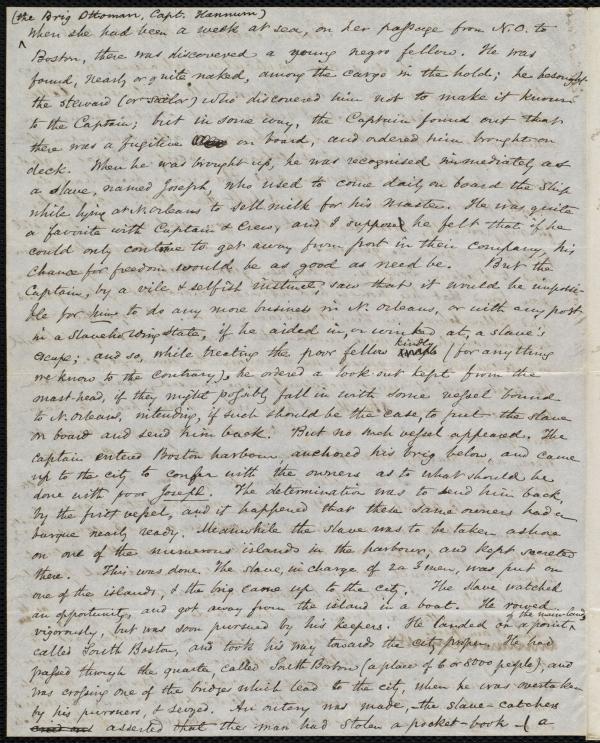 (the Brig Ottoman, Capt. Hannum)
When she had been a week at sea, on her passage from N.O. to
Boston, there was discovered a young negro fellow. He was
found, nearly or quite naked, among the cargo in the hold; he besought
the steward (or sailor) who discovered him not to make it known
to the Captain; but in some way, the Captain found out that
there was a fugitive on board, and ordered him brought on
deck. When he was brought up, he was recognised immediately as
a slave, named Joseph, who used to come daily on board the Ship
while lying at N. orleans to sell milk for his Master. He was quite
a favorite with Captain & Crew, and I suppose he felt that if he
could only contrive to get away from port in their company, his
chance for freedom would be as good as need be. But the
Captain, by a vile & selfish instinct, saw that it would be impossi-
ble for him to do any more business in N. orleans, or with any port
in a Slaveholding State, if he aided in, or winked at, a slave's
escape; and so, while treating the poor fellow kindly (for anything
we know to the contrary), he ordered a look-out kept from the
mast-head, if they might possibly fall in with some vessel bound
to N. Orleans, intending, if such should be the case, to put the slave
on board and send him back. But no such vessel appeared. The
Captain entered Boston harbour, anchored his brig below, and came
up to the city to confer with the owners as to what should be
done with poor Joseph. The determination was to send him back,
by the first vessel, and it happened that these same owners had a
barque nearly ready. Meanwhile the slave was to be taken ashore
on one of the numerous islands in the harbour, and kept secreted
there. This was done. The slave, in charge of 2 or 3 men, was put on
one of the islands, & the brig came up to the city. The slave watched
an opportunity, and got away from the island in a boat. He rowed
vigorously, but was soon pursued by his keepers. He landed on a point of the main land,
called South Boston, and took his way towards the city proper. He had
passed through the quarter called South Boston (a place of 6 or 8000 people), and
was crossing one of the bridges which lead to the city, when he was overtaken
by his pursuers, & seized. An outcry was made,—the slave-catchers
asserted that the man had stolen a pocket-book—(a